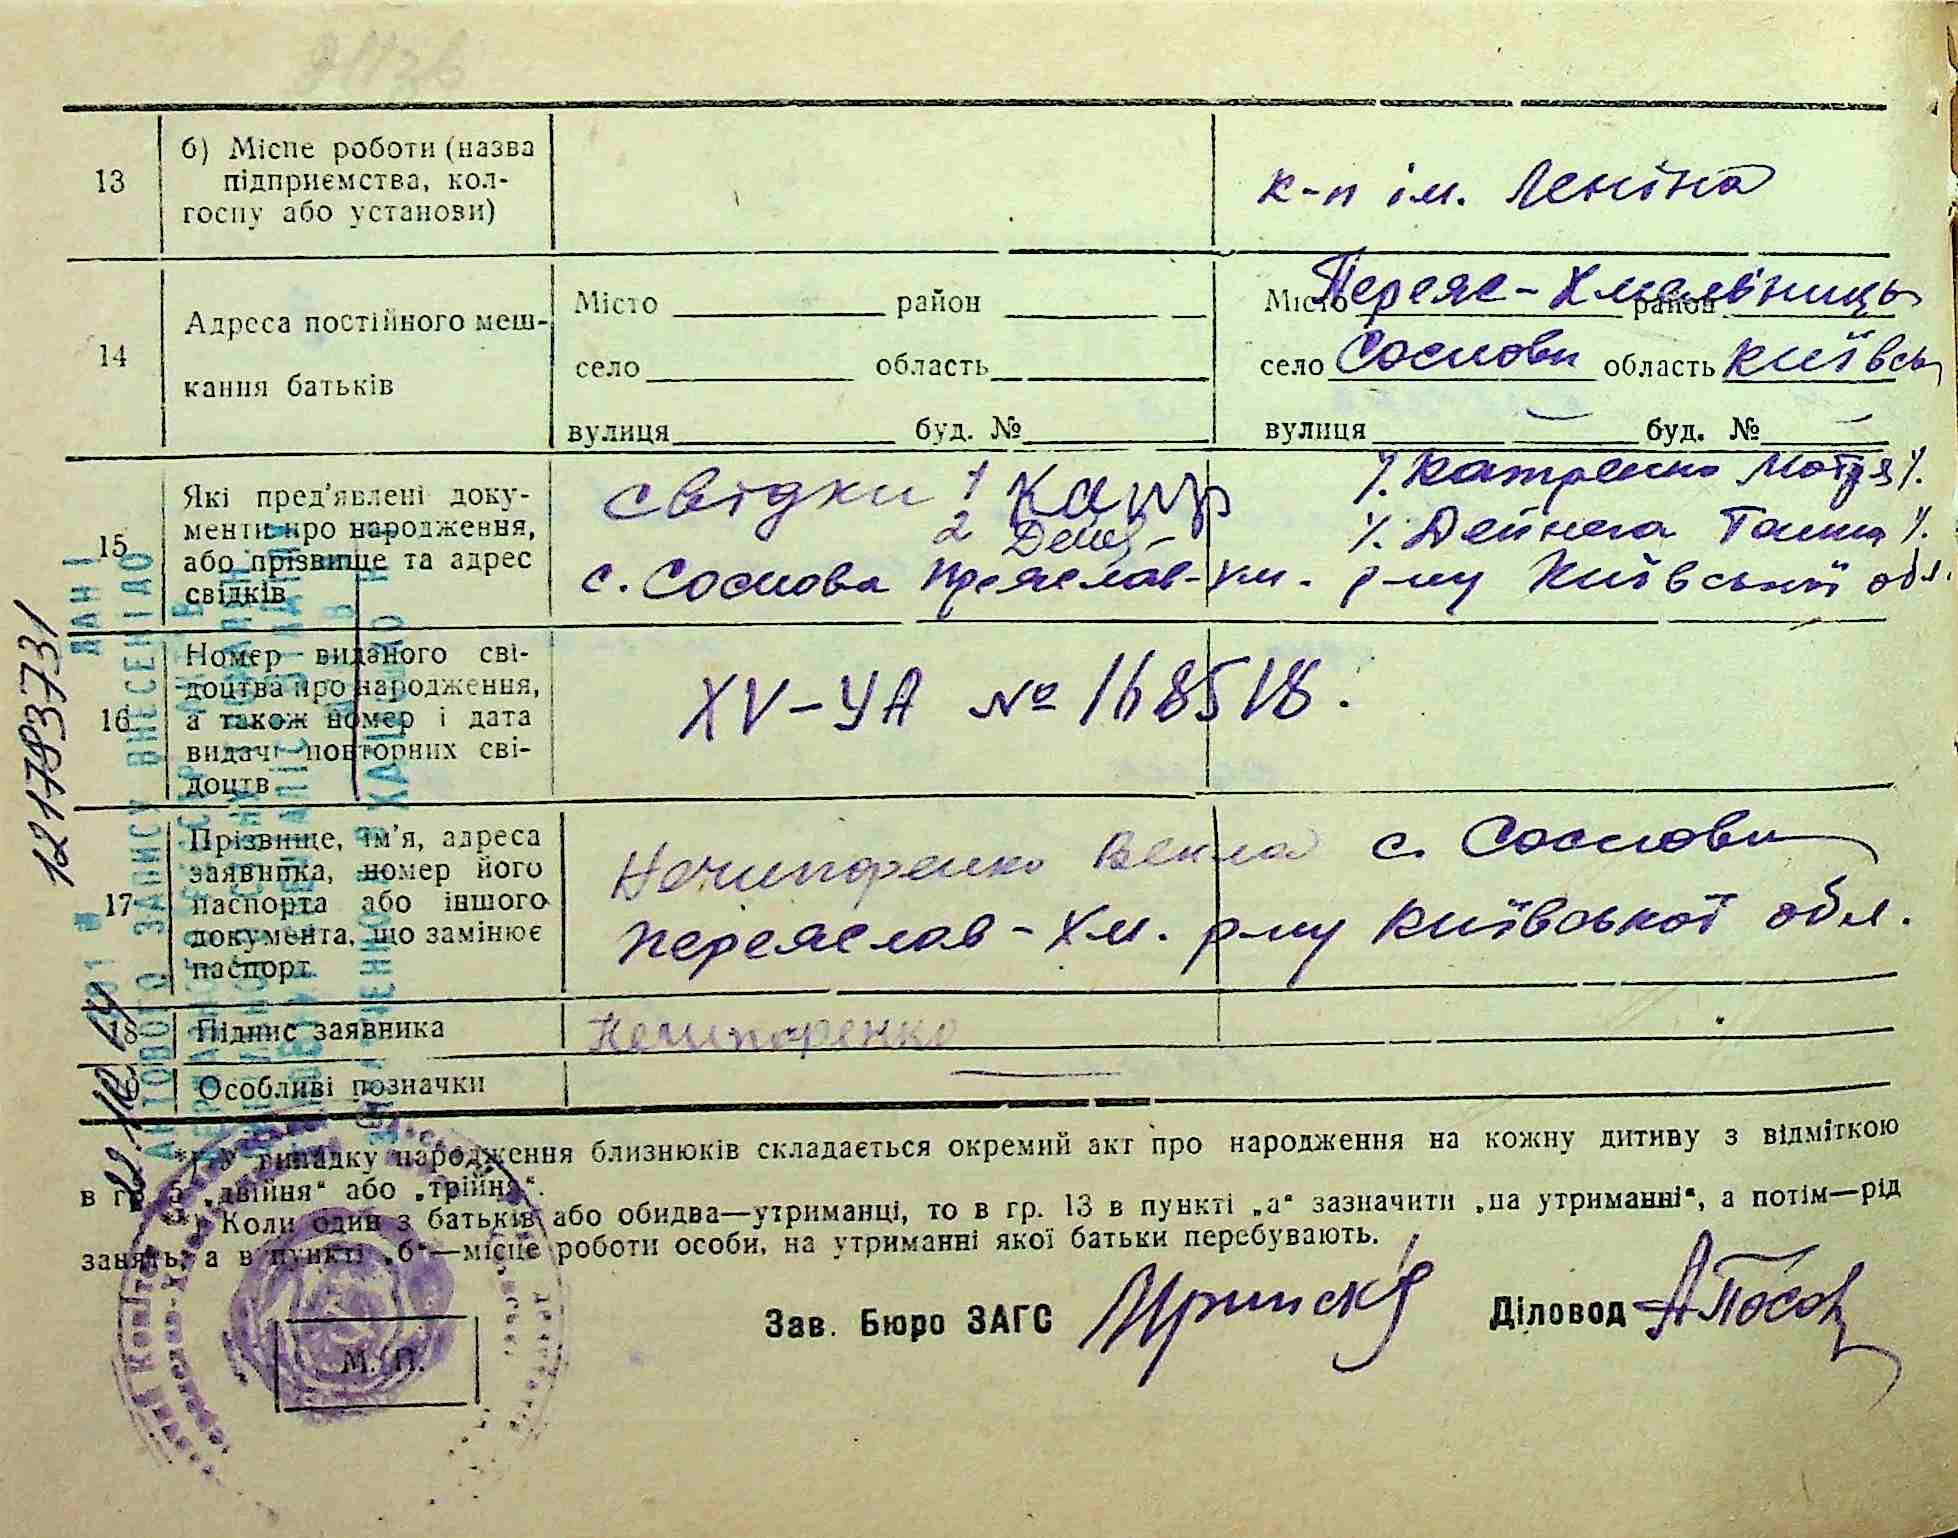 13 б) Місце роботи (назва
підприємства, кол-
госпу або установи)
к-п ім. Леніна
14 Адреса постійного меш-
кання батьків
Місто район
село область
вулиця буд. №
Місто Переяс-Хмельниць район
село Соснови область Київсь
вулиця — буд. № —
15 Які пред'явлені доку-
менти про народження,
або прізвище та адрес
свідків
свідки 1
2
/. Катренко Мотря /.
/. Дейнега Ганна /.
с. Соснова Преяслав-Хм. р-ну Київський обл.
16 Номер виданого сві-
доцтва про народження,
а також номер і дата
видачі повторних сві-
доцтв
XV-УА № 168518.
17 Прізвище, ім'я, адреса
заявника, номер його
паспорта або іншого
документа, що замінює
паспорт
Нечипоренко Векла с. Соснови
Переяслав-Хм. р-ну Київської обл.
18 Підпис заявника
Нечипоренко
19 Особливі позначки
*) У випадку народження близнюків складається окремий акт про народження на кожну дитину з відміткою
в гр. 5 „двійня“ або „трійня“.
**) Коли один з батьків або обидва—утриманці, то в гр. 13 в пункті „а“ зазначити „на утриманні“, а потім—рід
занять, а в пункті „б“—місце роботи особи, на утриманні якої батьки перебувають.
Зав. Бюро ЗАГС
Діловод
М. П.
121783731
22.10.14
ДАНІ
АКТОВОГО ЗАПИСУ ВНЕСЕНІ ДО